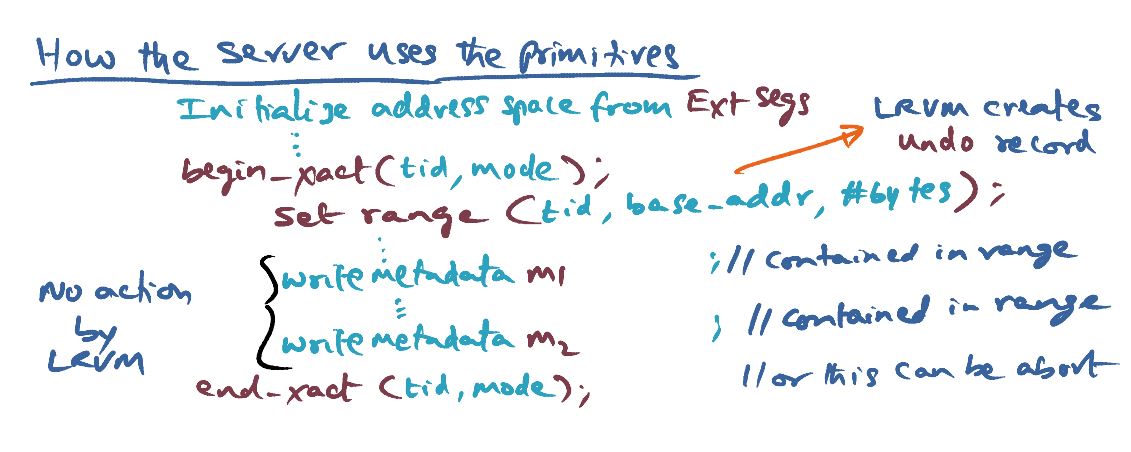 How the server uses the primitives
Initialize address space from Ext segs
LRVM creates
undo record
begin_xact(tid, mode);
set range (tid, base_addr, #bytes);
No action
by
LRVM
write metadata m1 ; // contained in range
write metadata m2 ; // contained in range
end_xact (tid, mode); // or this can be abort